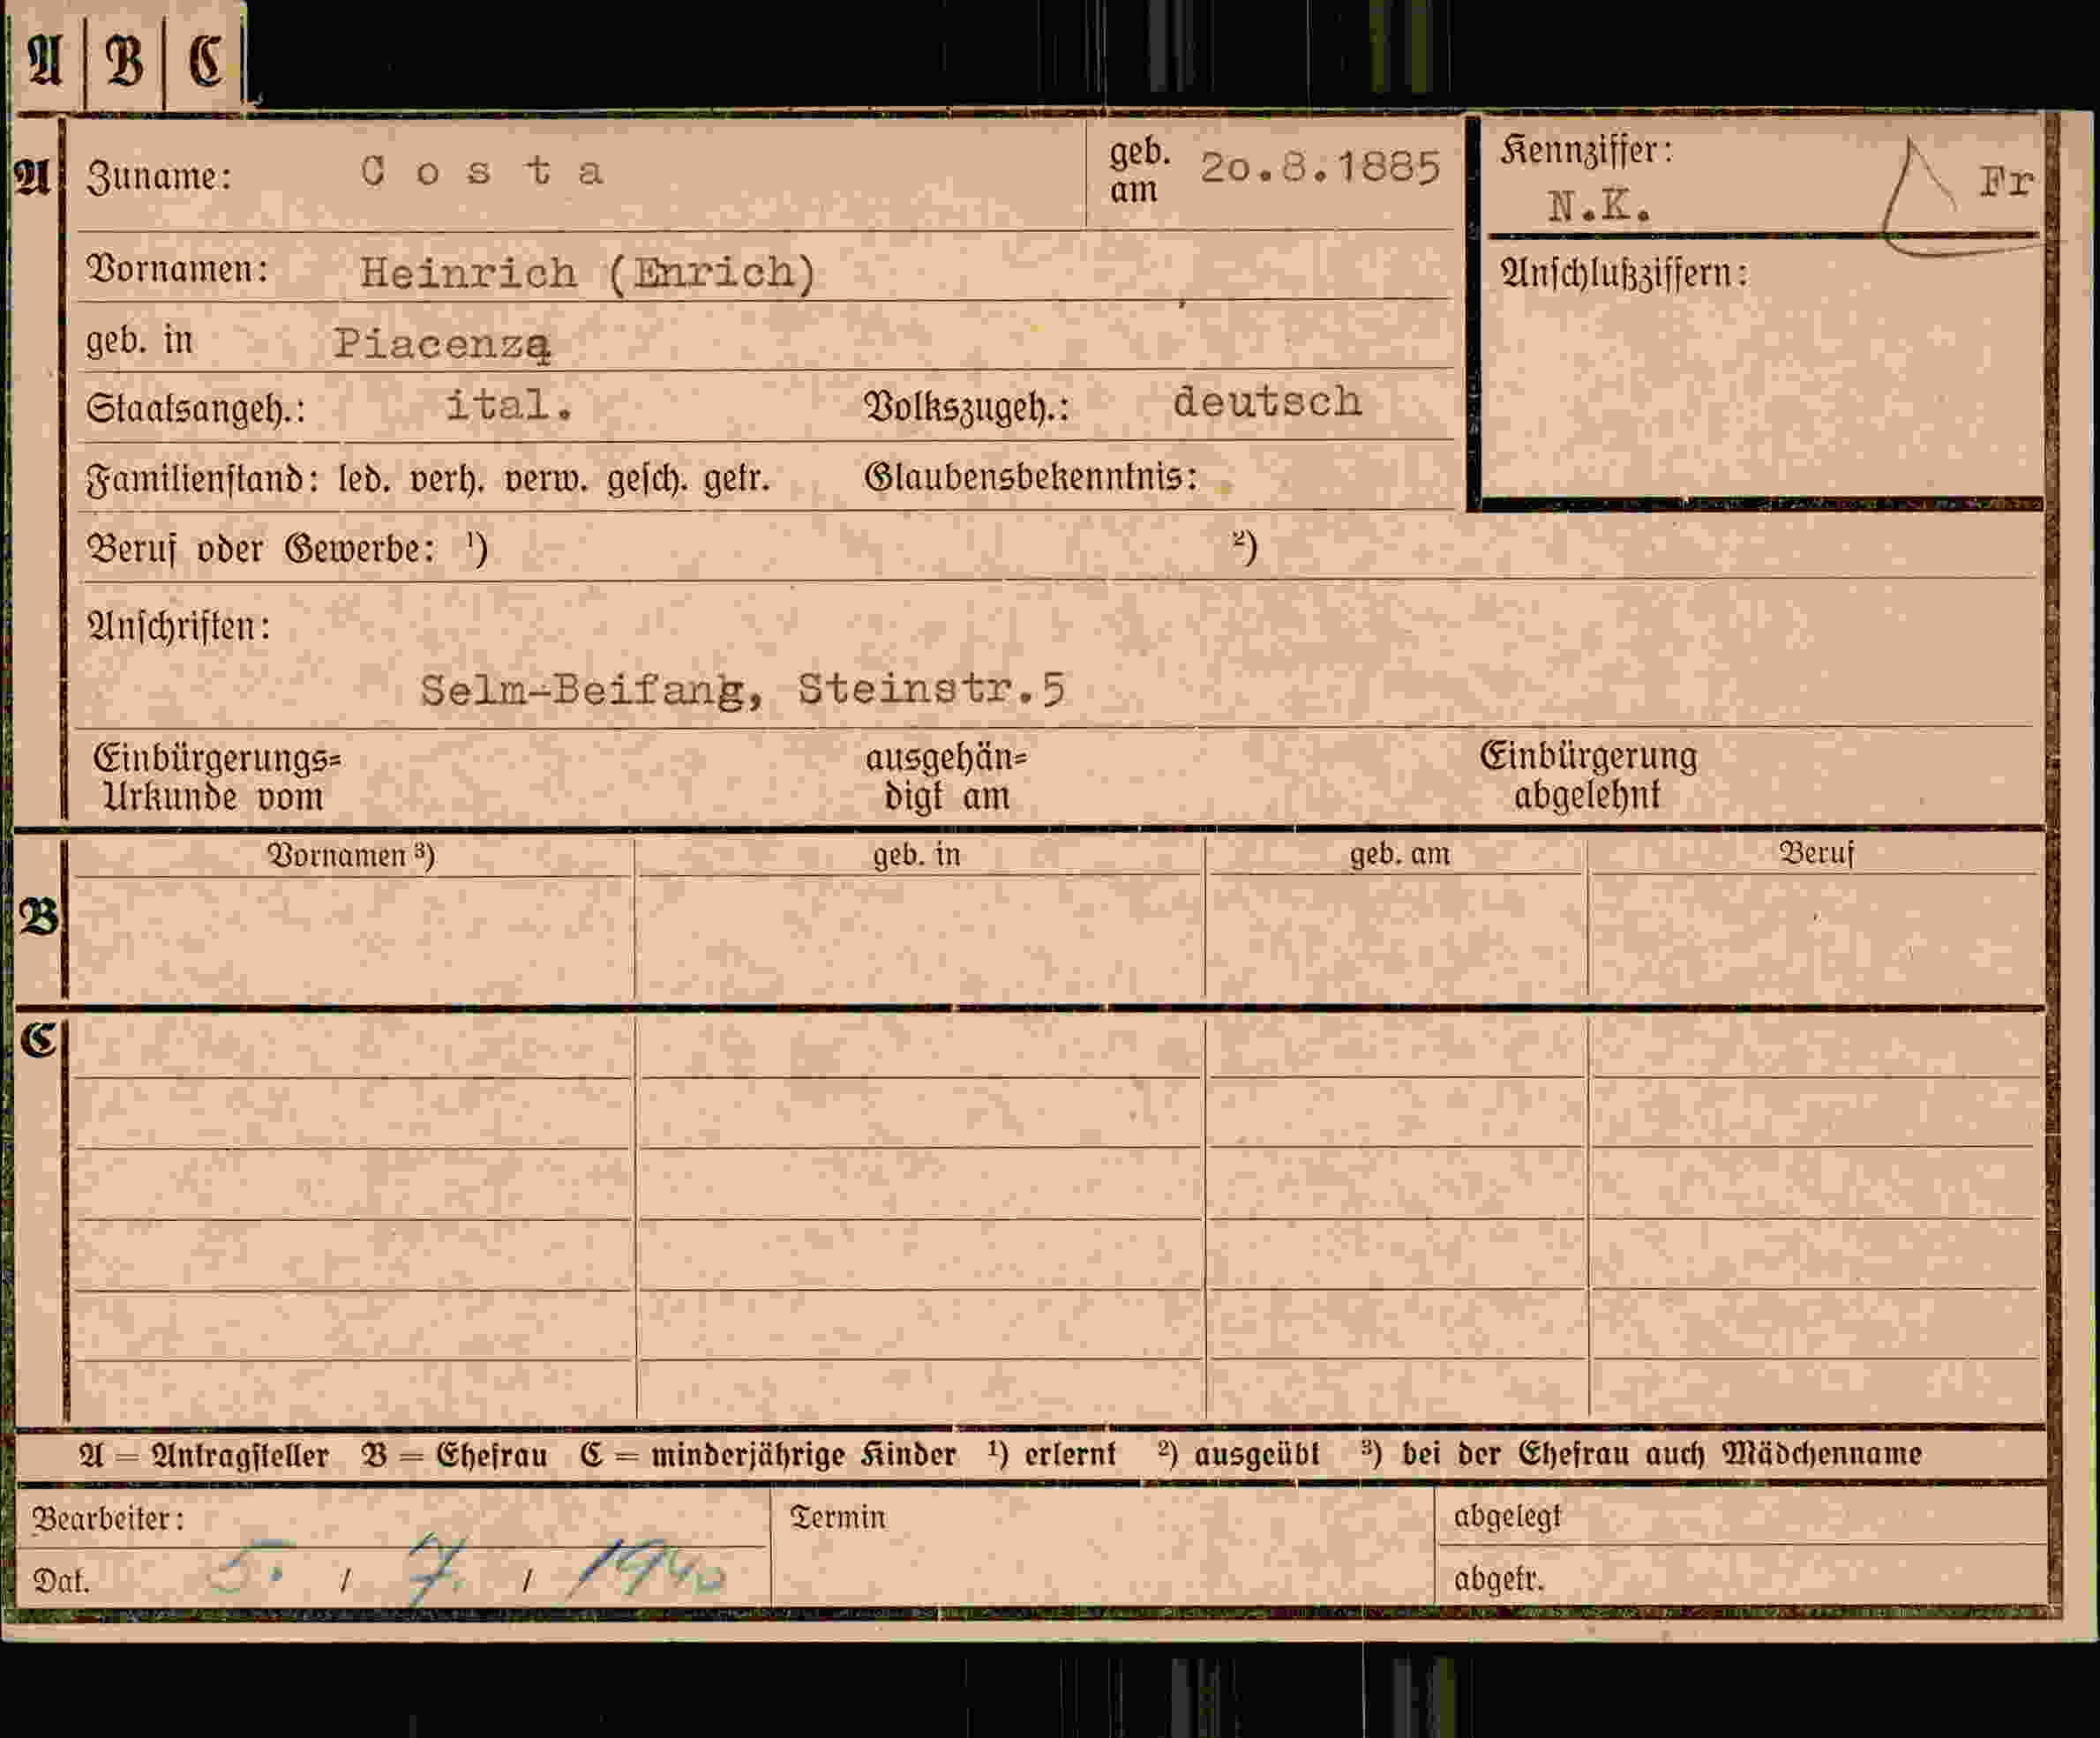 A | B | C
A Zuname: Costa geb. am 20.8.1885 Kennziffer: N.K. Fr
Vornamen: Heinrich (Enrich) Anschlußziffern:
geb. in Piacenza
Staatsangeh.: ital. Volkszugeh.: deutsch
Familienstand: led. verh. verw. gesch. getr. Glaubensbekenntnis:
Beruf oder Gewerbe: ¹) ²)
Anschriften:
Selm-Beifang, Steinstr.5
Einbürgerungs= ausgehän= Einbürgerung
Urkunde vom digt am abgelehnt
Vornamen ³) geb. in geb. am Beruf
B
C
A = Antragsteller B = Ehefrau C = minderjährige Kinder ¹) erlernt ²) ausgeübt ³) bei der Ehefrau auch Mädchenname
Bearbeiter: Termin abgelegt
Dat. 5. / 7. / 1940 abgetr.